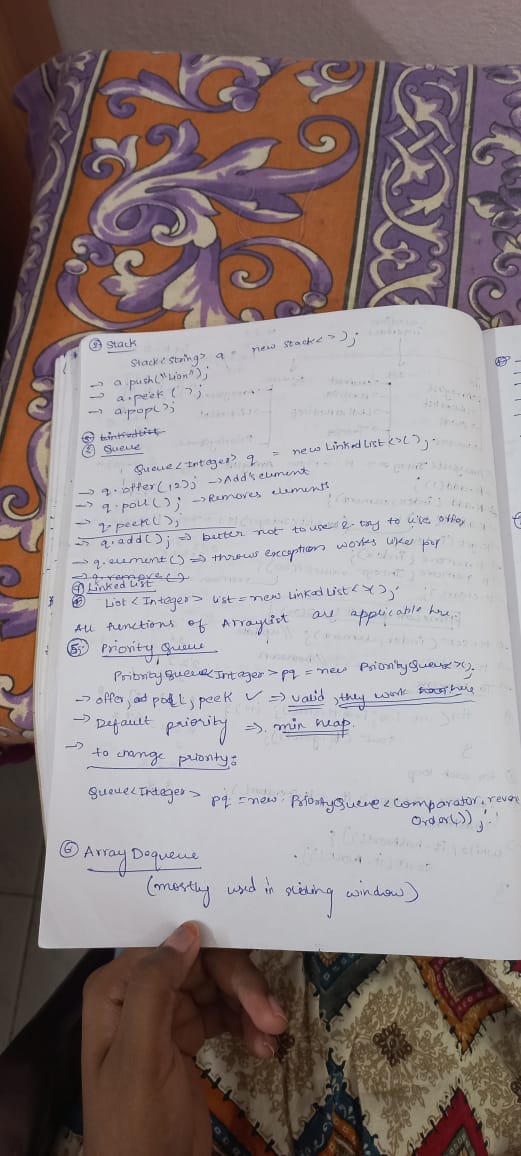 ② Stack
Stack<String> a = new Stack<>();
→ a.push("Lion");
→ a.peek();
→ a.pop();
LinkedList
③ Queue
Queue<Integer> q = new LinkedList<>();
→ q.offer(12); → Add's element
→ q.poll(); → Removes elements
→ q.peek();
→ q.add(); ⇒ better not to use & try to use offer
→ q.element() ⇒ throws exception works like
→ q.remove()
④ Linked List
List<Integer> list = new LinkedList<>();
All functions of Arraylist are applicable here.
⑤ Priority Queue
Priority Queue<Integer> pq = new Priority Queue<>();
→ offer, poll, peek ✓ ⇒ valid, they work here
→ Default priority ⇒ min heap.
→ to change priority:
Queue<Integer> pq = new PriorityQueue<Comparator.reverse
Order());
⑥ Array Dequeue
(mostly used in sliding window)